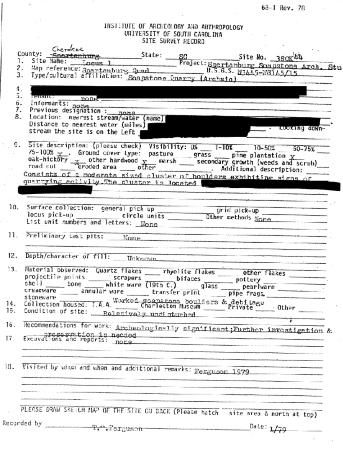 68-1 Rev. 78
INSTITUTE OF ARCHEOLOGY AND ANTHROPOLOGY
UNIVERSITY OF SOUTH CAROLINA
SITE SURVEY RECORD
Cherokee
County: Spartanburg State: SC Site No. 38CK44
1. Site Name: Locus 1 Project: Spartanburg Soapstone Arch. Stu
2. Map reference: Spartanburg Quad U.S.G.S.
3. Type/cultural affiliation: Soapstone Quarry (Archaic)
4.
5. Tenant: none
6. Informants: none
7. Previous designation: none
8. Location: nearest stream/water (name)
Distance to nearest water (miles)
stream the site is on the Left Looking down-
9. Site description: (please check) Visibility: 0% 1-10% 10-50% 50-75%
75-100% x cultivated pasture grass pine plantation x
oak-hickory x other hardwood x marsh secondary growth (weeds and scrub)
road cut eroded area other Additional description:
Consists of a moderate sized cluster of boulders exhibiting signs of
quarrying activity. The cluster is located
10. Surface collection: general pick up grid pick-up
locus pick-up circle units Other methods None
List unit numbers and letters: None
11. Preliminary test pits: None
12. Depth/character of fill: Unknown
13. Material observed: Quartz flakes rhyolite flakes other flakes
projectile points scrapers bifaces pottery
shell bone white ware (19th C.) glass pearlware
creamware annular ware transfer print pipe frags.
stoneware Worked soapstone boulders & debitage
14. Collection housed: I.A.A. Charleston Museum Private Other
15. Condition of site: Relatively undisturbed
16. Recommendations for work: Archeologically significant; Further investigation &
preservation is needed
17. Excavations and reports: none
18. Visited by whom and when and additional remarks: Ferguson 1979
PLEASE DRAW SKETCH MAP OF THE SITE ON BACK (Please hatch site area & north at top)
Recorded by T. Ferguson Date: 1/79